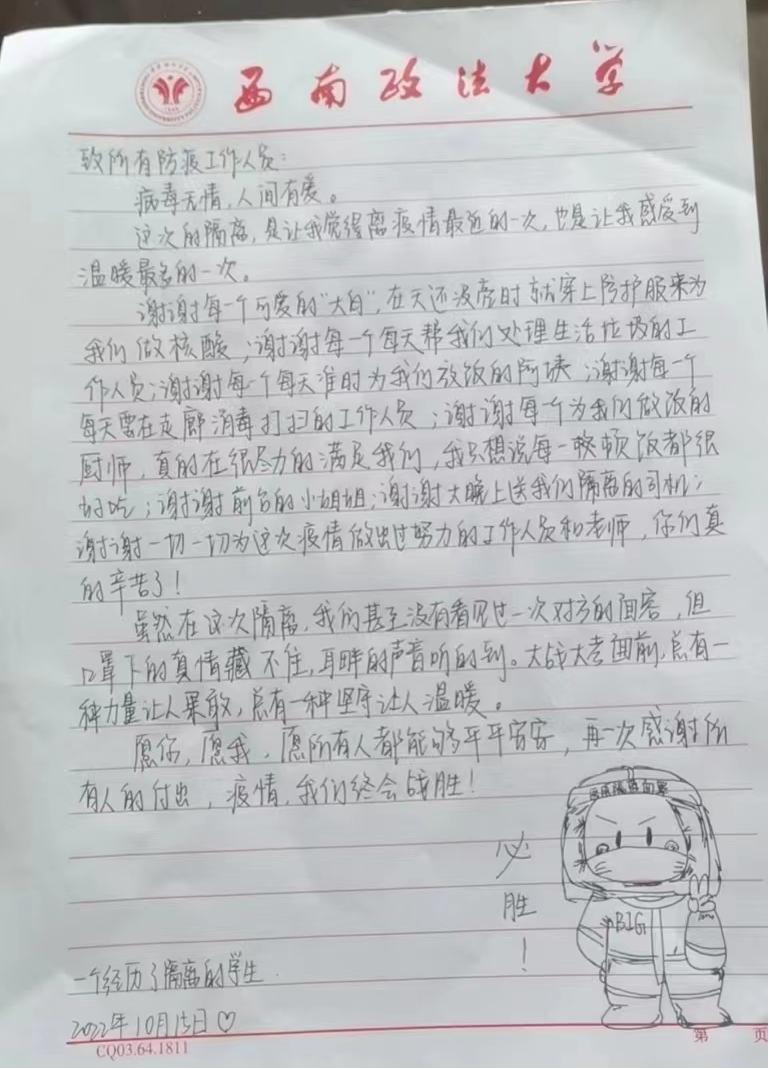 西南政法大学
致所有防疫工作人员：
病毒无情，人间有爱。
这次的隔离，是让我觉得离疫情最近的一次，也是让我感受到
温暖最多的一次。
谢谢每一个可爱的“大白”，在天还没亮时就穿上防护服来为
我们做核酸；谢谢每一个每天帮我们处理生活垃圾的工
作人员；谢谢每一个每天准时为我们放饭的阿姨；谢谢每一个
每天要在走廊消毒打扫的工作人员；谢谢每一个为我们做饭的
厨师，真的在很尽力的满足我们，我只想说每一顿饭都很
好吃；谢谢前台的小姐姐；谢谢大晚上送我们隔离的司机；
谢谢一切一切为这次疫情做出过努力的工作人员和老师，你们真
的辛苦了！
虽然在这次隔离，我们甚至没有看见过一次对方的面容，但
口罩下的真情藏不住，耳畔的声音听的到。大战大考面前，总有一
种力量让人果敢，总有一种坚守让人温暖。
愿你，愿我，愿所有人都能够平平安安，再一次感谢所
有人的付出，疫情，我们终会战胜！
医用隔离面罩
必
胜
！
BIG
一个经历了隔离的学生
2022年10月15日♡
CQ03.64.1811
第 页